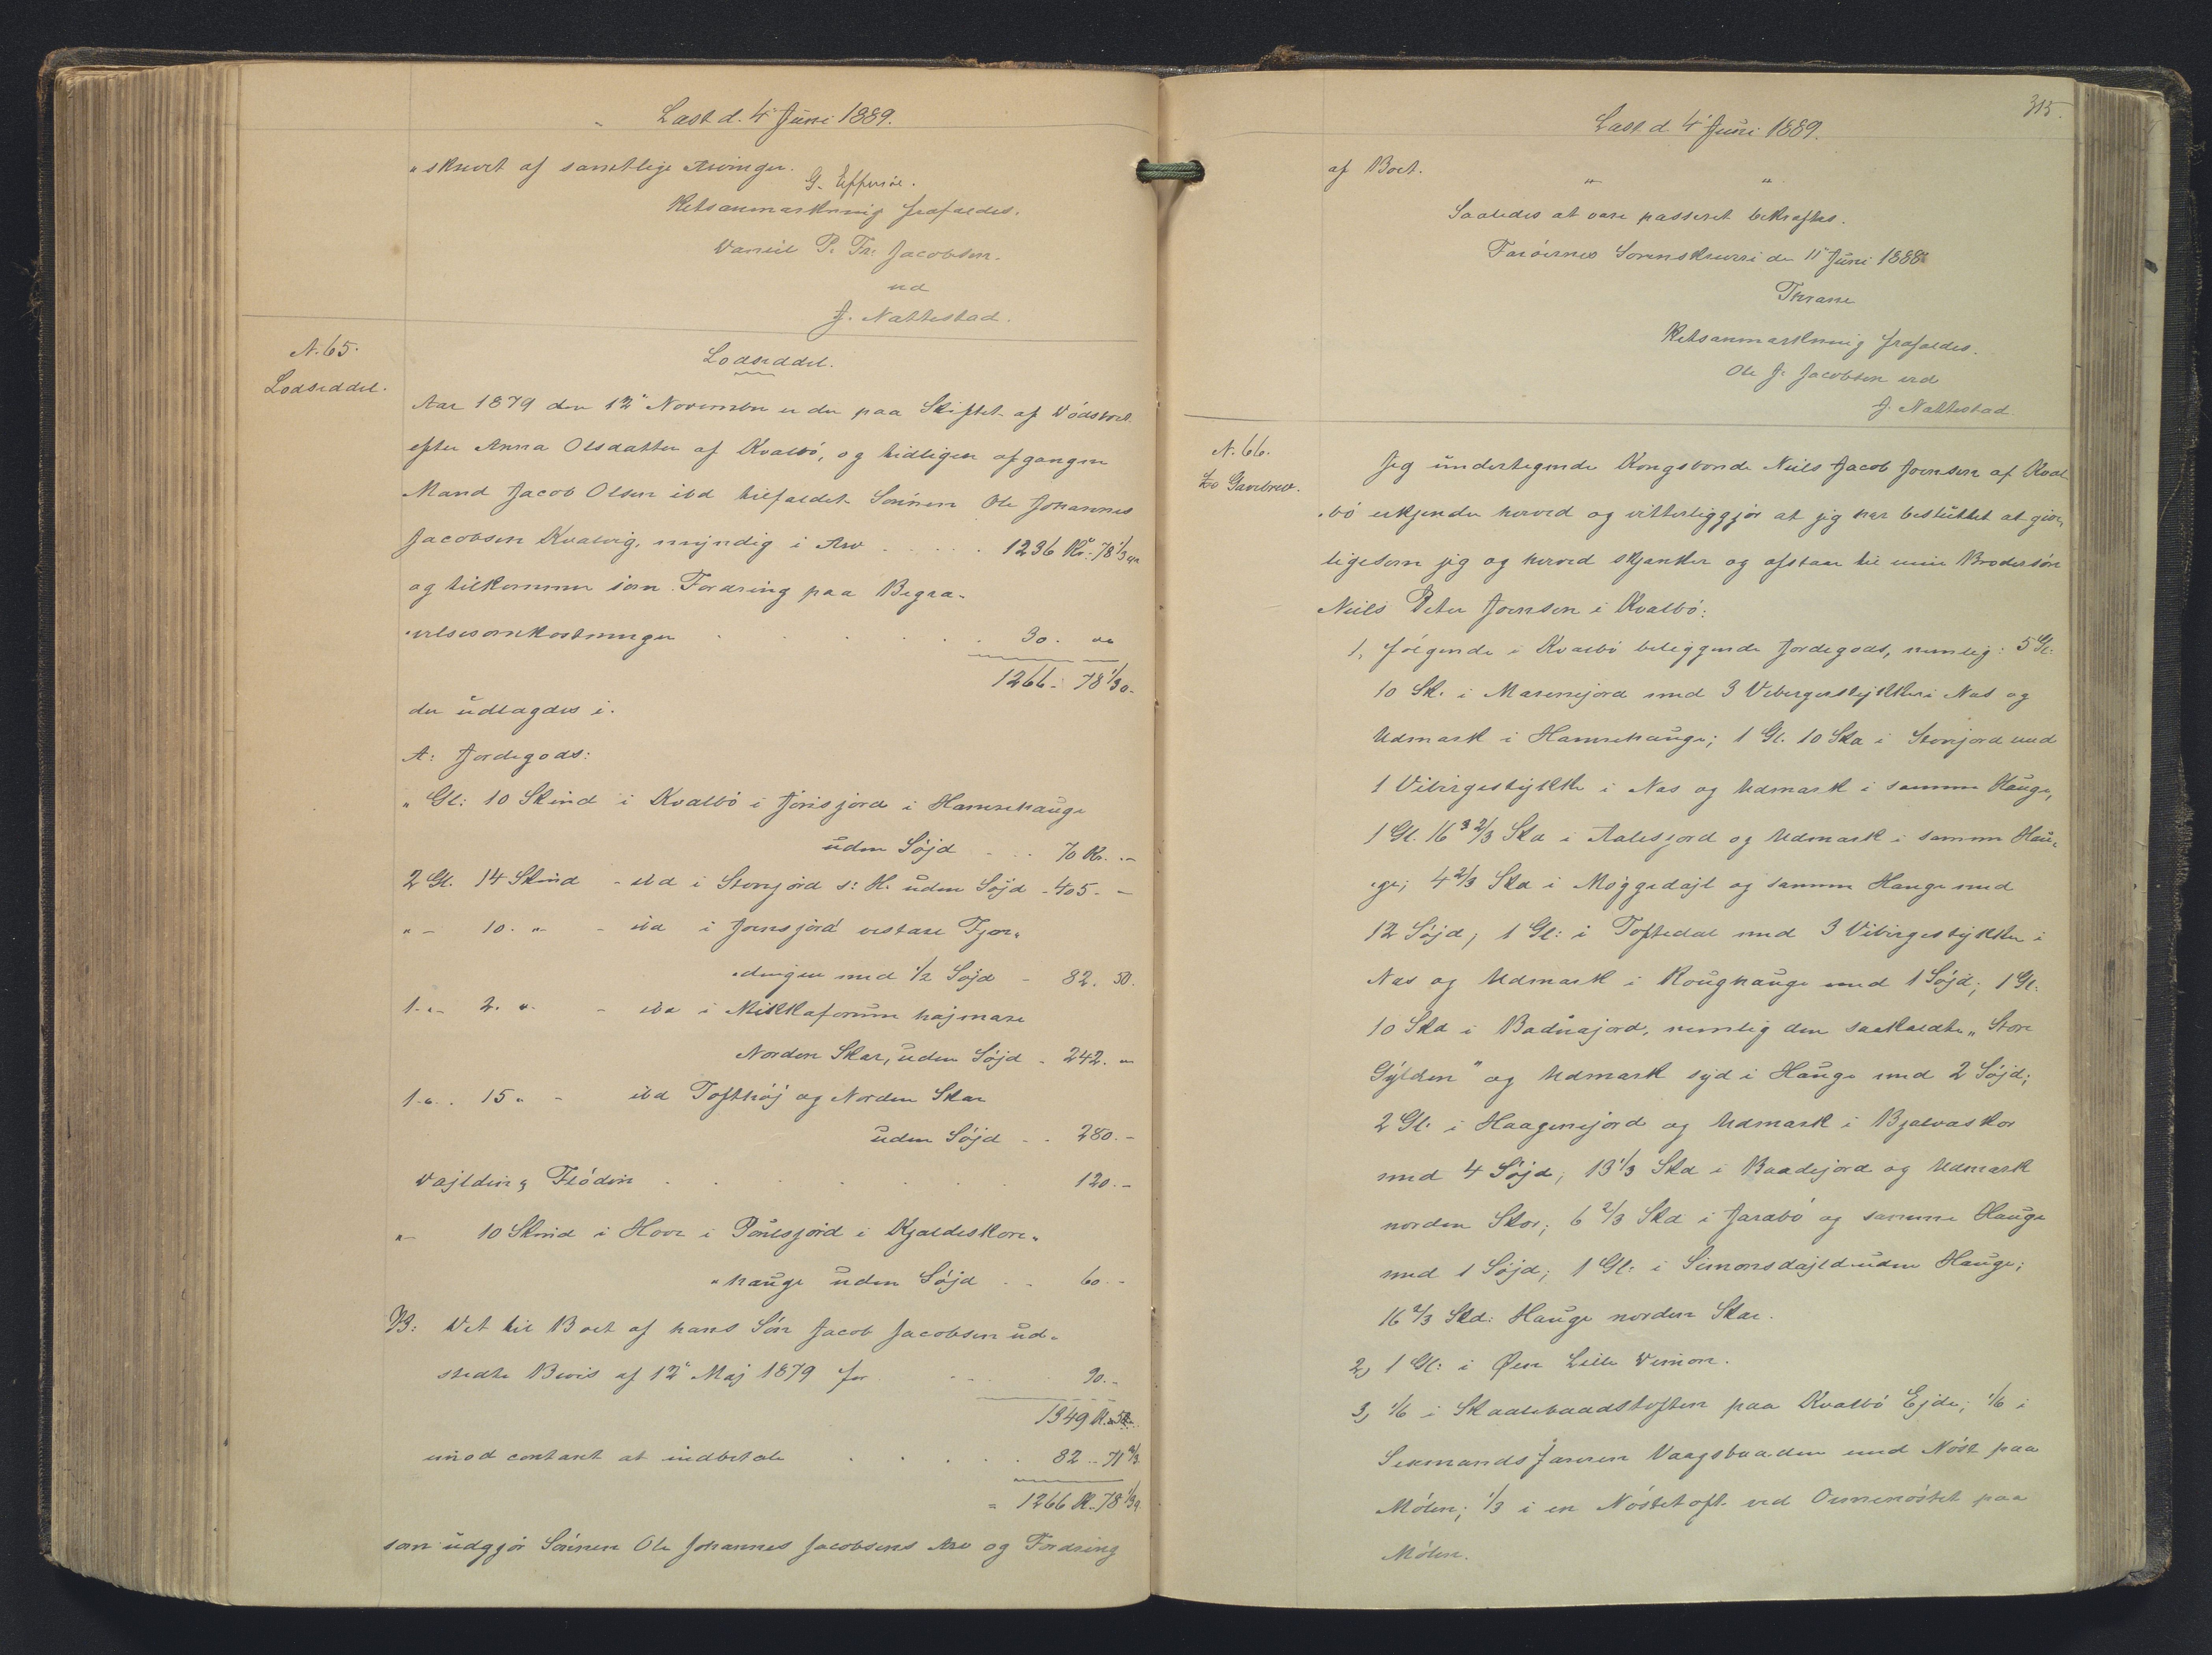 Læst d. 4' Juni 1889.
"skrevet af samtlige Arvinger.
G. Effersöe.
Retsanmærkning frafaldes.
Daniel P. Fr. Jacobsen.
ved
J. Nattestad.
N. 65.
Lodseddel.
Lodseddel.
Aar 1879 den 12" November er der paa Skiftet af Dödsboet
efter Anna Olsdatter af Kvalbö, og tidligere afgangne
Mand Jacob Olsen ibd tilfaldet Sönnen Ole Johannes
Jacobsen Kvalvig, myndig i Arv . . . . . 1236 Kr. 78 1/3
og tilkommer som Fordring paa Begra-
velsesomkostninger . . . . . 30. "
1266 - 78 1/3 o.
der udlagdes i.
A: Jordegods:
" Gl: 10 Skind i Kvalbö i Jórisjord i Hamrehauge
uden Söjd . . . 70 Kr. -
2 Gl. 14 Skind - ibd i Storejord s: H. uden Söjd - 405 - -
" - 10. " - ibd i Joensjord vestare Fjor-
dingen med 1/2 Söjd - 82. 50.
1 - " - 2. " - ibd i Mikkaforum hajmare
Norden Skar, uden Söjd - 242. "
1 - " . 15 " - ibd Tofthöj og Norden Skar
uden Söjd - - 280. -
Dajldin & Flödin . . . . . . 120. -
" - 10 Skind i Hove i Poulsjord i Kjaldeskore-
"hauge uden Söjd . . 60 - -
B: Det til Boet af hans Sön Jacob Jacobsen ud-
stedte Bevis af 12" Maj 1879 for . . . 90. -
1349 K. 50
imod contant at indbetale . . . . . 82 - 71 2/3
= 1266 K. 78 1/3
som udgjör Sönnen Ole Johannes Jacobsens Arv og Fordring
315.
Læst d 4' Juni 1889.
af Boet.
" "
Saaledes at være passeret bekræftes.
Færöernes Sorenskriveri den 11" Juni 1888
Thrane
Retsanmærkning frafaldes.
Ole J. Jacobsen ved
J. Nattestad
N. 66.
Gavebrev.
Jeg undertegnede Kongsbonde Niels Jacob Joensen af Kval-
bö erkjender herved og vitterliggjör at jeg har besluttet at give,
ligesom jeg og herved skjænker og afstaar til min Brodersön
Niels Peter Joensen i Kvalbö:
1, fölgende i Kvalbö beliggende Jordegods, nemlig: 5 Gl.
10 Sk. i Marnejord med 3 Vibirgestykker i Næs og
Udmark i Hamrehauge; 1 Gl. 10 Skd i Storejord med
1 Vibirgestykke i Næs og Udmark i samme Hauge,
1 Gl. 16 2/3 Skd i Aalesjord og Udmark i samme Hau-
ge; 4 2/3 Skd i Moggedajl og samme Hauge med
12 Söjd; 1 Gl: i Toftedal med 3 Vibirgestykker i
Næs og Udmark i Roughauge med 1 Söjd; 1 Gl.
10 Skd i Baduajord, nemlig den saakaldte "Store
Gylden" og Udmark syd i Hauge med 2 Söjd;
2 Gl. i Haagenejord og Udmark i Bjalvaskor
med 4 Söjd; 13 1/3 Skd i Baadejord og Udmark
norden Skor; 6 2/3 Skd i Jarabö og samme Hauge
med 1 Söjd; 1 Gl: i Simonsdajld uden Hauge;
16 2/3 Skd: Hauge norden Skar.
2, 1 Gl: i Öen Lille Dimon.
3, 1/6 i Skaalebaadstoften paa Kvalbö Ejde; 1/6 i
Sexmandsfareren Vaagsbaaden med Nöst paa
Mölen; 1/3 i en Nöstetoft ved Ounenöstet paa
Mölen.